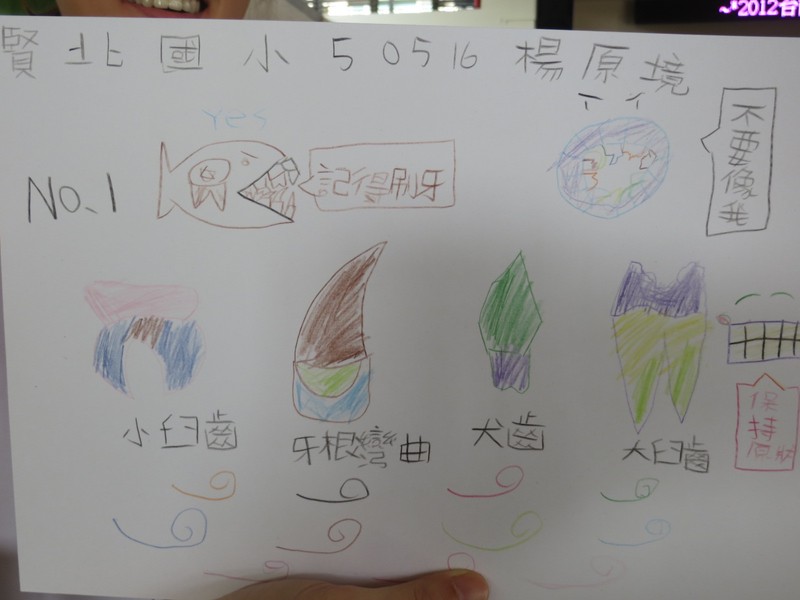 ~*2012台
賢北國小 50516 楊原境
yes
不要像我
NO.1
記得刷牙
小臼齒
牙根彎曲
犬齒
大臼齒
保持原狀